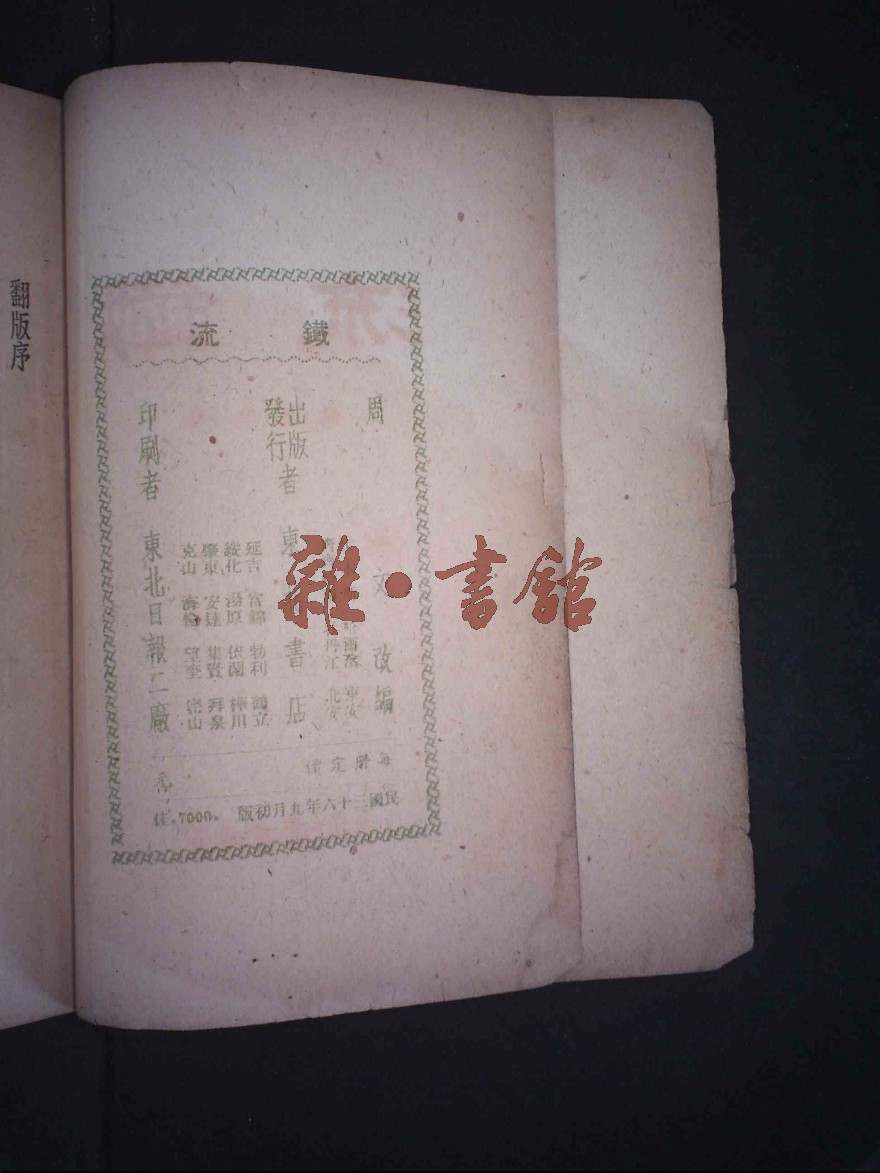 鐵流
周文改編
出版者
發行
東 書店
爾濱 東安
丹江 北安
延吉 富錦 勃利
綏化 湯原 依蘭 樺川
肇東 安達 集賢 拜泉
克山 海倫 望奎 密山
印刷者 東北日報二廠
每冊定價
民國三十六年九月初版 。7000。佳
翻版序
雜·書館